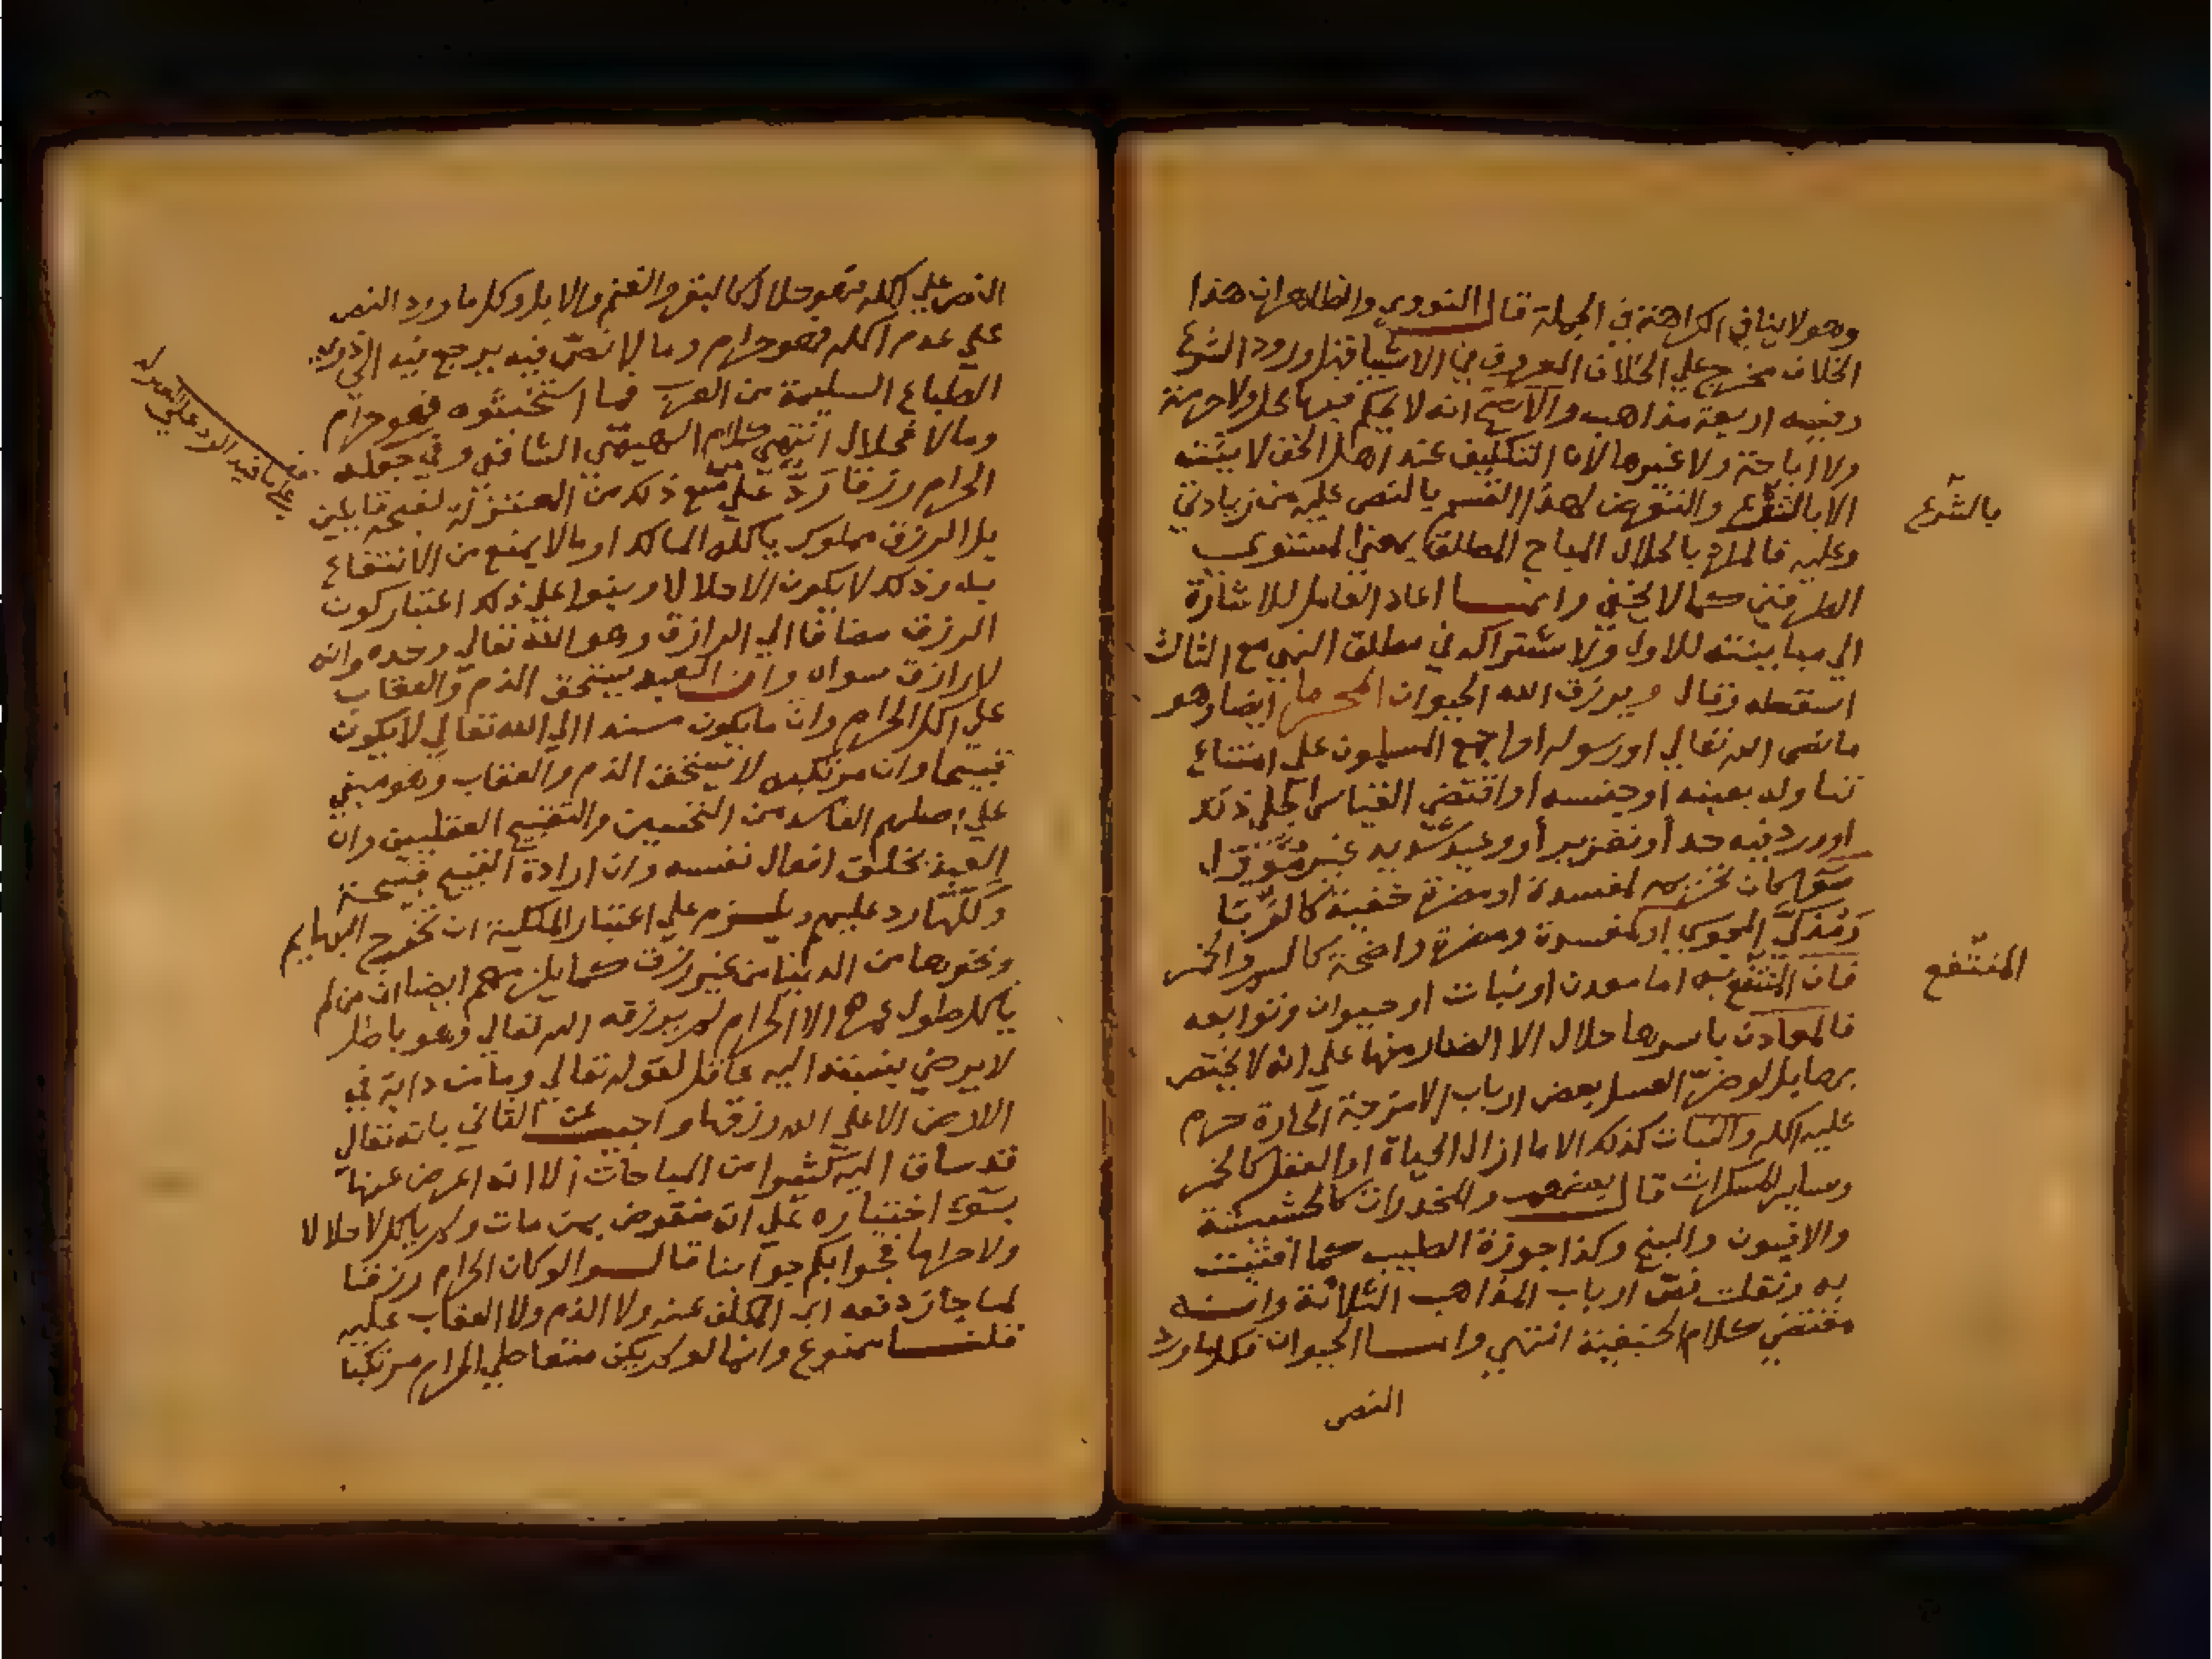 وهو لا ينافي الكراهة في الجملة قال النووي والظاهر ان هذا
الخلاف مخرج علي الخلاف المعروف في الاشيا قبل ورود الشرع
وفيه اربعة مذاهب والاصح انه لا يحكم فيها بحل ولا حرمة
ولا اباحة ولا غيرها لان التكليف عند اهل الحق لا يثبت
الا بالشرع والتنويه عن لهذا القسم بالنص عليه من زيادتي
وعليه فالمراد بالحلال المباح المطلق يعني المستوي
الطرفين كما لا يخفي وانما اعاد العامل للاشارة
الي مباينته للاول ولاشتراكه في مطلق النهي مع الثالث
اسقطه وقال ويرزق الله الحيوان المحرما ايضا وهو
ما نص الله تعالي او رسوله او اجمع المسلمون علي امتناع
تناوله بعينه او جنسه او اقتضي القياس الجلي ذلك
او ورد فيه حد او تعزير أو وعيد شديد غير مؤول
سوا كان تحريمه لمفسدة او مضرة خفية كالربا
ومذكي المجوسي او لمفسدة ومضرة واضحة كالسم والخمر
فان المنتفع به اما معدن او نبات او حيوان وتوابعه
فالمعادن باسرها حلال الا الضار منها علي انه لا يختص
بها بل لو ضر العسل بعض ارباب الامزجة الحارة حرم
عليه اكله والنبات كذلك الا ما ازال الحياة او العقل كالخمر
وساير المسكرات قال بعضهم والمخدرات كالحشيشة
والافيون والبنج وكذا جوزة الطيب كما افتيت
به ونقلت نص ارباب المذاهب الثلاثة وانه
مقتضي كلام الحنفية انتهي واما الحيوان فكلما ورد
النص
بالشرع
المنتفع
النص علي اكله فهو حلال كالبقر والغنم والابل وكل ما ورد النص
علي عدم اكله فهو حرام وما لا نص فيه يرجع فيه الي ذوي
الطباع السليمة من العرب فما استخبثوه فهو حرام
وما لا فحلال انتهي كلام الهيتمي الشافعي وفي جعله
الحرام رزقا رد علي من منع ذلك من المعتزلة لقبحه قايلين
بل الرزق مملوك ياكله المالك او ما لا يمنع من الانتفاع
به وذلك لا يكون الا حلالا وبنوا علي ذلك اعتبار كون
الرزق مضافا الي الرازق وهو الله تعالي وحده وانه
لا رازق سواه وان العبد يستحق الذم والعقاب
علي اكل الحرام وان ما يكون مسندا الي الله تعالي لا يكون
قبيحا وان مرتكبه لا يستحق الذم والعقاب وهو مبني
علي اصلهم الفاسد من التحسين والتقبيح العقليين وان
العبد يخلق افعال نفسه وان ارادة القبيح قبيحة
وكلها رد عليهم ويلزم علي اعتبار الملكية ان تخرج البهايم
ونحوها من الدنيا من غير رزق كما يلزمهم ايضا ان من لم
ياكل طول عمره الا الحرام لم يرزقه الله تعالي وهو باطل
لا يرضي بنسبته اليه عاقل لقوله تعالي وما من دابة في
الارض الا علي الله رزقها واجيب عن الثاني بانه تعالي
قد ساق اليه كثيرا من المباحات الا انه اعرض عنها
بسوء اختياره علي انه منقوض بمن مات ولم ياكل لا حلالا
ولا حراما فجوابكم جوابنا قالوا لو كان الحرام رزقا
لما جاز دفعه اي المكلف عنه ولا الذم ولا العقاب عليه
قلنا ممنوع وانما لو لم يكن متعاطي الحرام مرتكبا